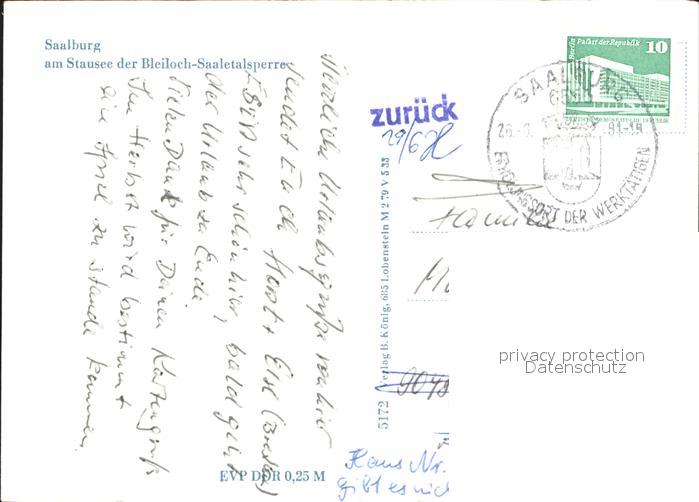 Saalburg
am Stausee der Bleiloch-Saaletalsperre
Herzliche Urlaubsgrüße von hier
sendet Euch Horst + Else
Es ist sehr schön hier, bald geht
der Urlaub zu Ende.
Vielen Dank für Deinen Kartengruß
Im Herbst wird bestimmt
die Apsel zu stande kommen.
EVP DDR 0,25 M
5172 Verlag B. König, 685 Lobenstein M 2 79 V 5 33
zurück
29/6
Berlin Palast der Republik 10
SAALBURG
ERHOLUNGSORT DER WERKTÄTIGEN
Familie
Haus Nr.
gibt es nich
privacy protection
Datenschutz